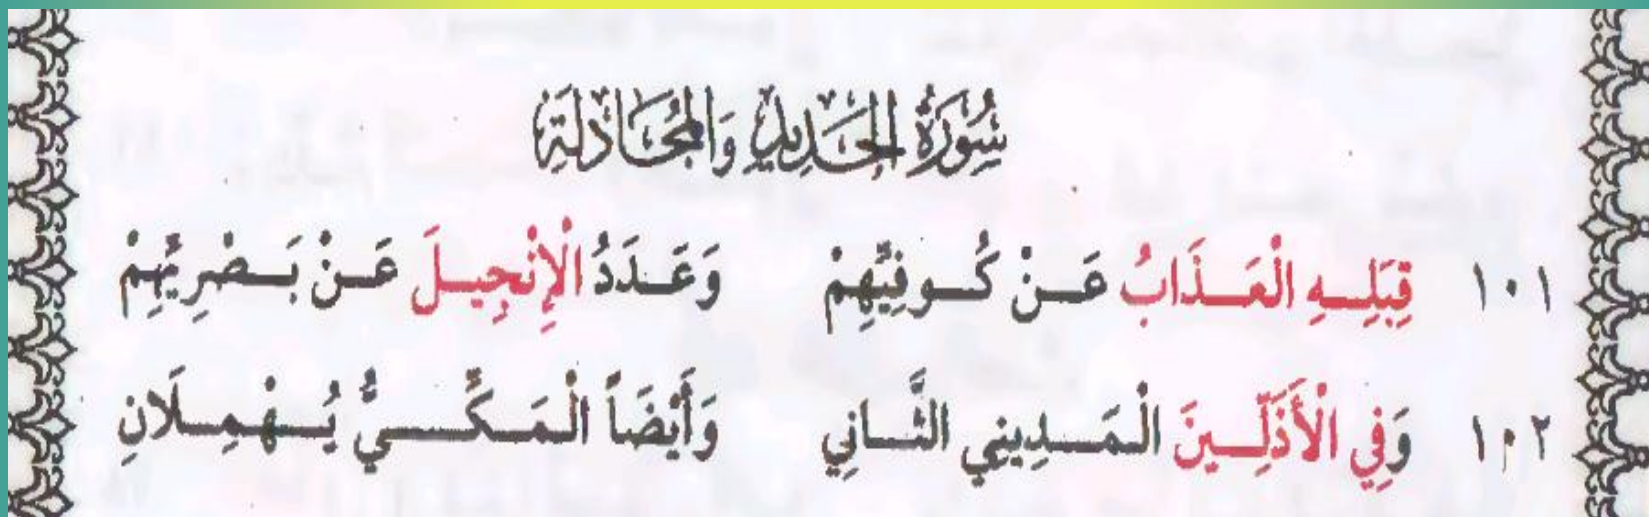 سُورَةُ الحَدِيدِ وَالمُجَادَلَة
١٠١ قِبَلِهِ الْعَذَابُ عَنْ كُوفِيِّهِمْ وَعَدَدُ الْإِنْجِيلَ عَنْ بَصْرِيِّهِمْ
١٠٢ وَفِي الْأَذَلِّينَ الْمَدِينِي الثَّانِي وَأَيْضَاً الْمَكِّيُّ يُهْمِلَانِ